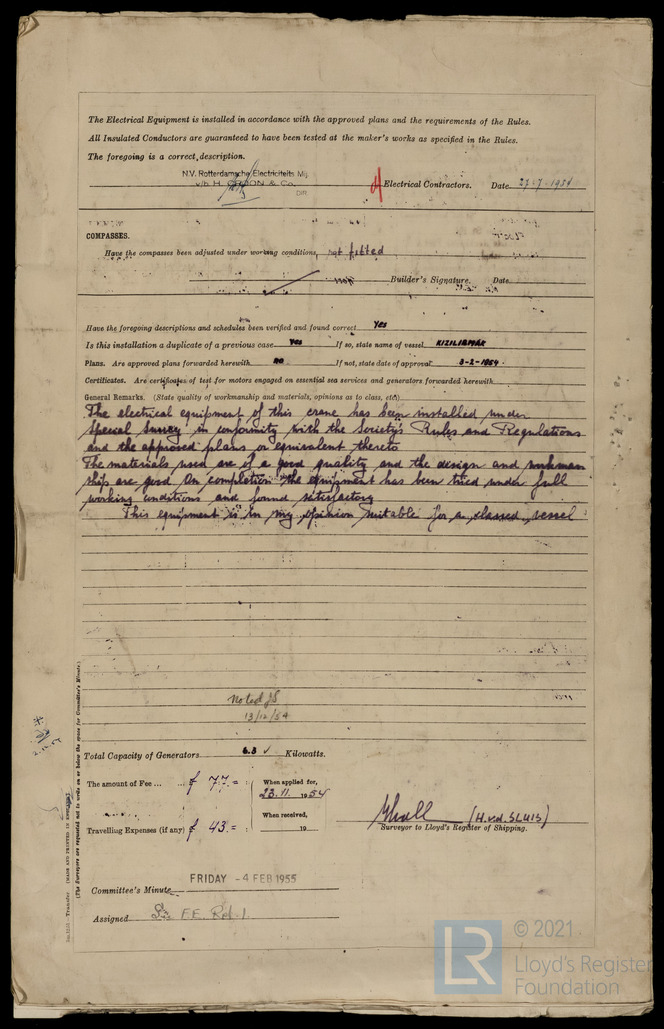 The Electrical Equipment is installed in accordance with the approved plans and the requirements of the Rules.
All Insulated Conductors are guaranteed to have been tested at the maker's works as specified in the Rules.
The foregoing is a correct description.
N.V. Rotterdamsche Electriciteits Mij
v/h H. & Co.
DIR
Electrical Contractors. Date 27-7-1954
COMPASSES.
Have the compasses been adjusted under working conditions, not fitted
Builder's Signature. Date
Have the foregoing descriptions and schedules been verified and found correct Yes
Is this installation a duplicate of a previous case Yes If so, state name of vessel KIZILIRMAK
Plans. Are approved plans forwarded herewith no If not, state date of approval 3-2-1954.
Certificates. Are certificates of test for motors engaged on essential sea services and generators forwarded herewith
General Remarks. (State quality of workmanship and materials, opinions as to class, etc.)
The electrical equipment of this crane has been installed under
Special Survey in conformity with the Society's Rules and Regulations
and the approved plans or equivalent thereto
The materials used are of a good quality and the design and workman
ship are good On completion the equipment has been tried under full
working conditions and found satisfactory
This equipment is in my opinion suitable for a classed vessel
Noted JS
13/12/54
Total Capacity of Generators 6.3 ✓ Kilowatts.
The amount of Fee ... £ 77 = : When applied for,
23.11. 1954
When received,
Travelling Expenses (if any) £ 43. = : 19
(H.v.d. SLUIS)
Surveyor to Lloyd's Register of Shipping.
FRIDAY -4 FEB 1955
Committee's Minute
Assigned See F.E. Rpt. 1.
(The Surveyors are requested not to write on or below the space for Committee's Minute.)
Transfer (MADE AND PRINTED IN ENGLAND)
LR
© 2021
Lloyd's Register
Foundation